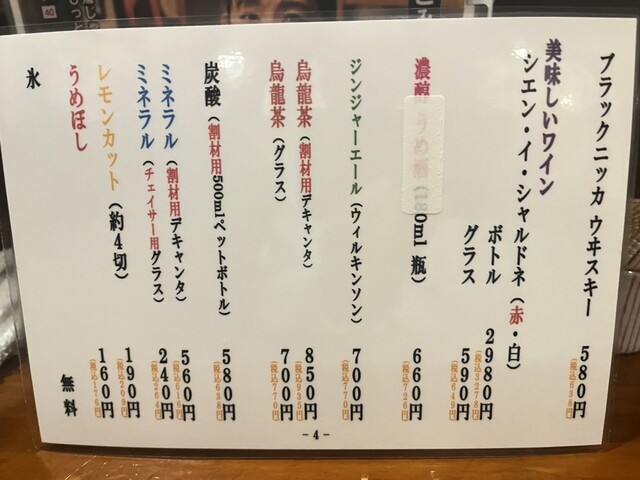 ブラックニッカ ウヰスキー 580円
(税込638円)
美味しいワイン
シエン・イ・シャルドネ（赤・白）
ボトル 2980円
(税込3278円)
グラス 590円
(税込649円)
濃醇 うめ酒（180ml 瓶） 660円
(税込726円)
ジンジャーエール（ウィルキンソン） 700円
(税込770円)
烏龍茶（割材用デキャンタ） 850円
(税込935円)
烏龍茶（グラス） 700円
(税込770円)
炭酸（割材用500mlペットボトル） 580円
(税込638円)
ミネラル（割材用デキャンタ） 560円
(税込616円)
ミネラル（チェイサー用グラス） 240円
(税込264円)
レモンカット（約4切） 190円
(税込209円)
うめぼし 160円
(税込176円)
氷 無料
-4-
40